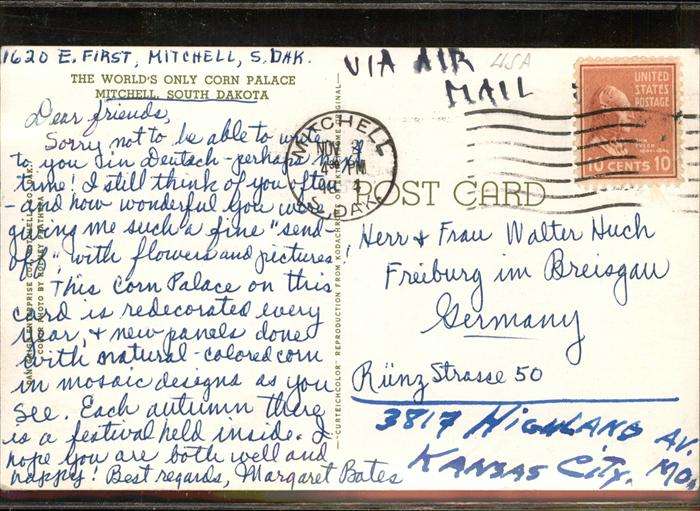 1620 E. FIRST, MITCHELL, S. DAK.
THE WORLD'S ONLY CORN PALACE
MITCHELL, SOUTH DAKOTA
Dear friends,
Sorry not to be able to write
to you in Deutsch - perhaps next
time! I still think of you often
- and how wonderful you were
giving me such a fine "send-
off", with flowers and pictures.
This Corn Palace on this
card is redecorated every
year, & new panels done
with natural-colored corn
in mosaic designs as you
see. Each autumn there
is a festival held inside. I
hope you are both well and
happy! Best regards, Margaret Bates
VIA AIR
MAIL
USA
MITCHELL
NOV
4 30 PM
S. DAK.
UNITED
STATES
POSTAGE
10 CENTS 10
POST CARD
Herr & Frau Walter Huch
Freiburg im Breisgau
Germany
Rünz Strasse 50
3817 HIGHLAND AV.
KANSAS CITY, MO.
"CURTEICHCOLOR" REPRODUCTION FROM KODACHROME